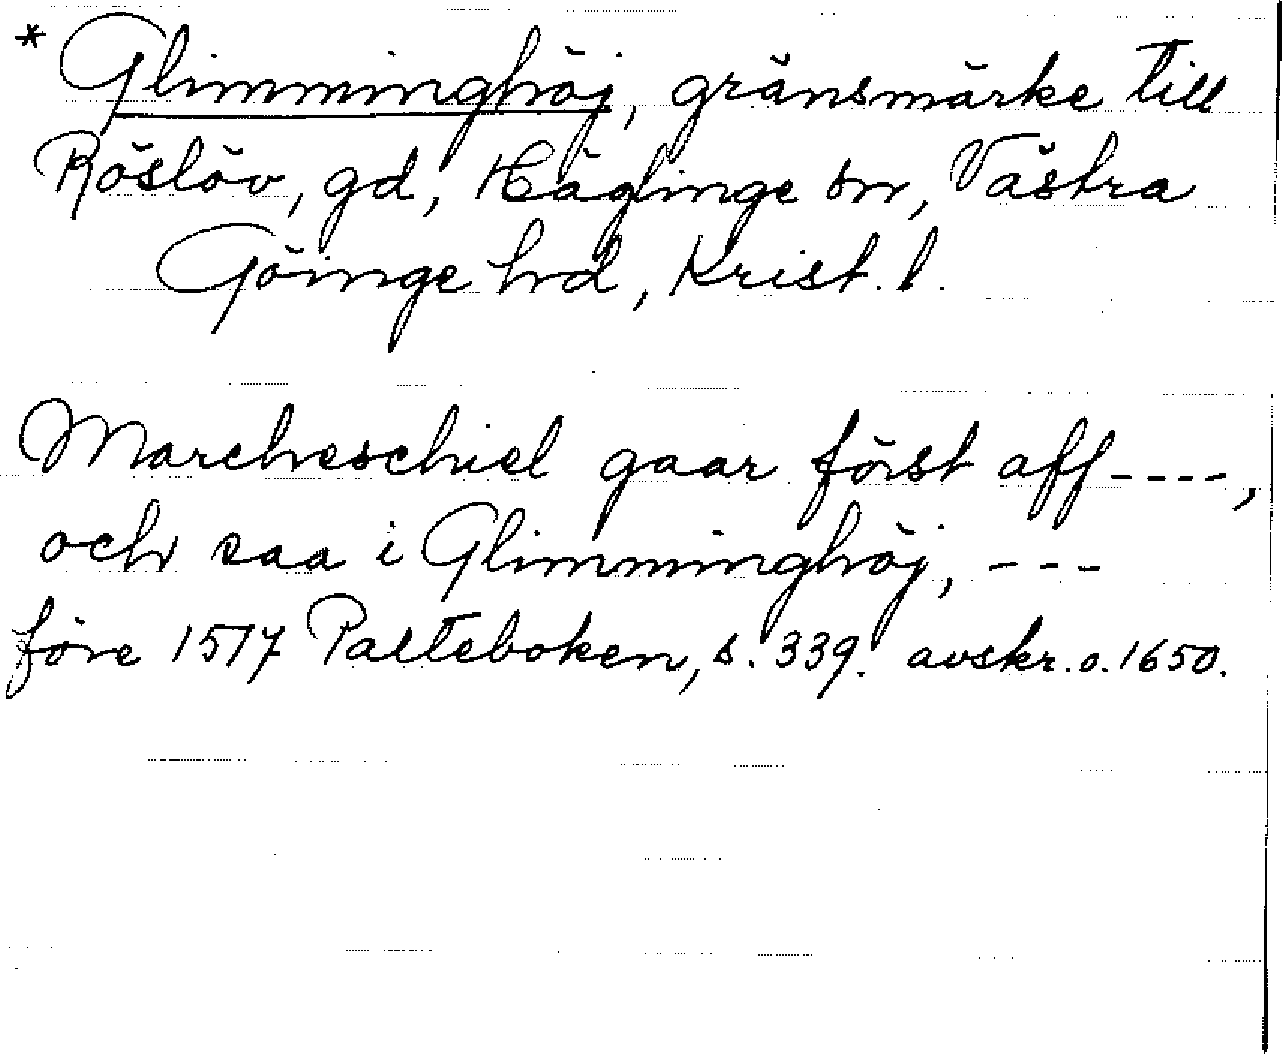 * Glimminghöj, gränsmärke till
Röslöv, gd, Häglinge sn, Västra
Göinge hd, Krist. l.
Marcheschiel gaar först aff ----,
och saa i Glimminghöj, ---
före 1517 Palteboken, s. 339. avskr. o. 1650.